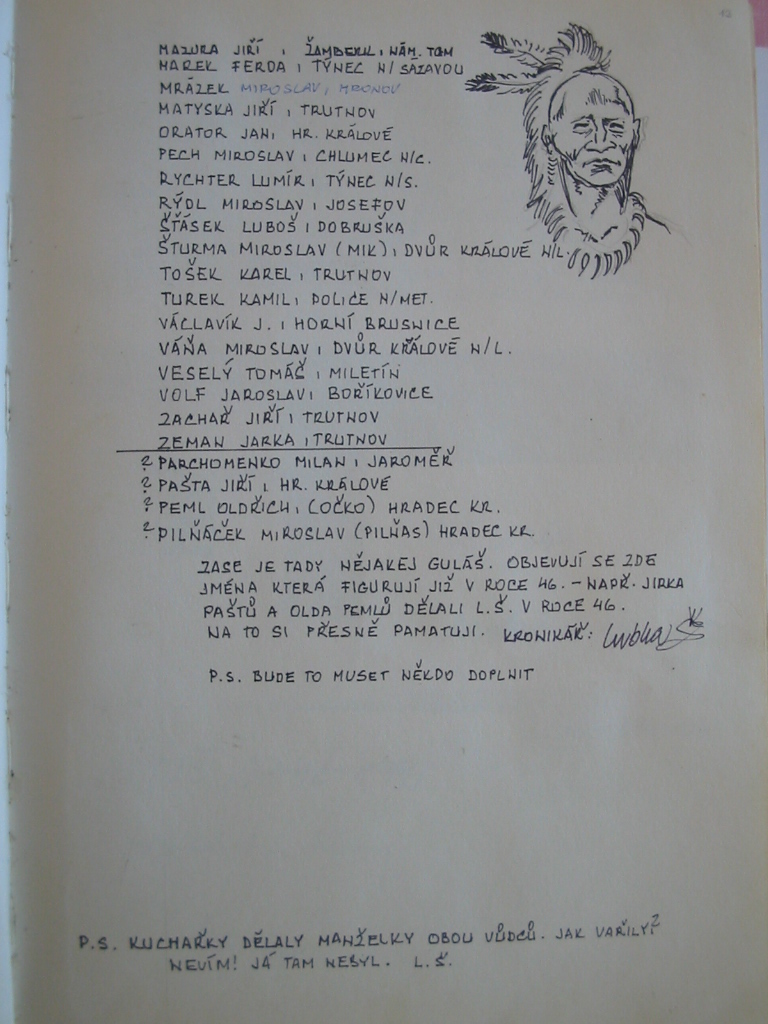 MAZURA JIŘÍ, ŽAMBERK, NÁM. TGM
MAREK FERDA, TÝNEC N/SÁZAVOU
MRÁZEK MIROSLAV, HRONOV
MATYSKA JIŘÍ, TRUTNOV
ORATOR JAN, HR. KRÁLOVÉ
PECH MIROSLAV, CHLUMEC N/C.
RYCHTER LUMÍR, TÝNEC N/S.
RÝDL MIROSLAV, JOSEFOV
ŠŤÁSEK LUBOŠ, DOBRUŠKA
ŠTURMA MIROSLAV (MIK), DVŮR KRÁLOVÉ N/L.
TOŠEK KAREL, TRUTNOV
TUREK KAMIL, DOLICE N/MET.
VÁCLAVÍK J., HORNÍ BRUSNICE
VÁŇA MIROSLAV, DVŮR KRÁLOVÉ N/L.
VESELÝ TOMÁŠ, MILETÍN
VOLF JAROSLAV, BOŘÍKOVICE
ZACHAŘ JIŘÍ, TRUTNOV
ZEMAN JARKA, TRUTNOV
? PARCHOMENKO MILAN, JAROMĚŘ
? PAŠTA JIŘÍ, HR. KRÁLOVÉ
? PEML OLDŘICH, (OČKO) HRADEC KR.
? PILŇÁČEK MIROSLAV (PILŇAS) HRADEC KR.
ZASE JE TADY NĚJAKEJ GULÁŠ. OBJEVUJÍ SE ZDE
JMÉNA KTERÁ FIGURUJÍ JIŽ V ROCE 46. - NAPŘ. JIRKA
PAŠTŮ A OLDA PEMLŮ DĚLALI L.Š. V ROCE 46.
NA TO SI PŘESNĚ PAMATUJI. KRONIKÁŘ:
P.S. BUDE TO MUSET NĚKDO DOPLNIT
P.S. KUCHAŘKY DĚLALY MANŽELKY OBOU VŮDCŮ. JAK VAŘILY?
NEVÍM! JÁ TAM NEBYL. L.Š.